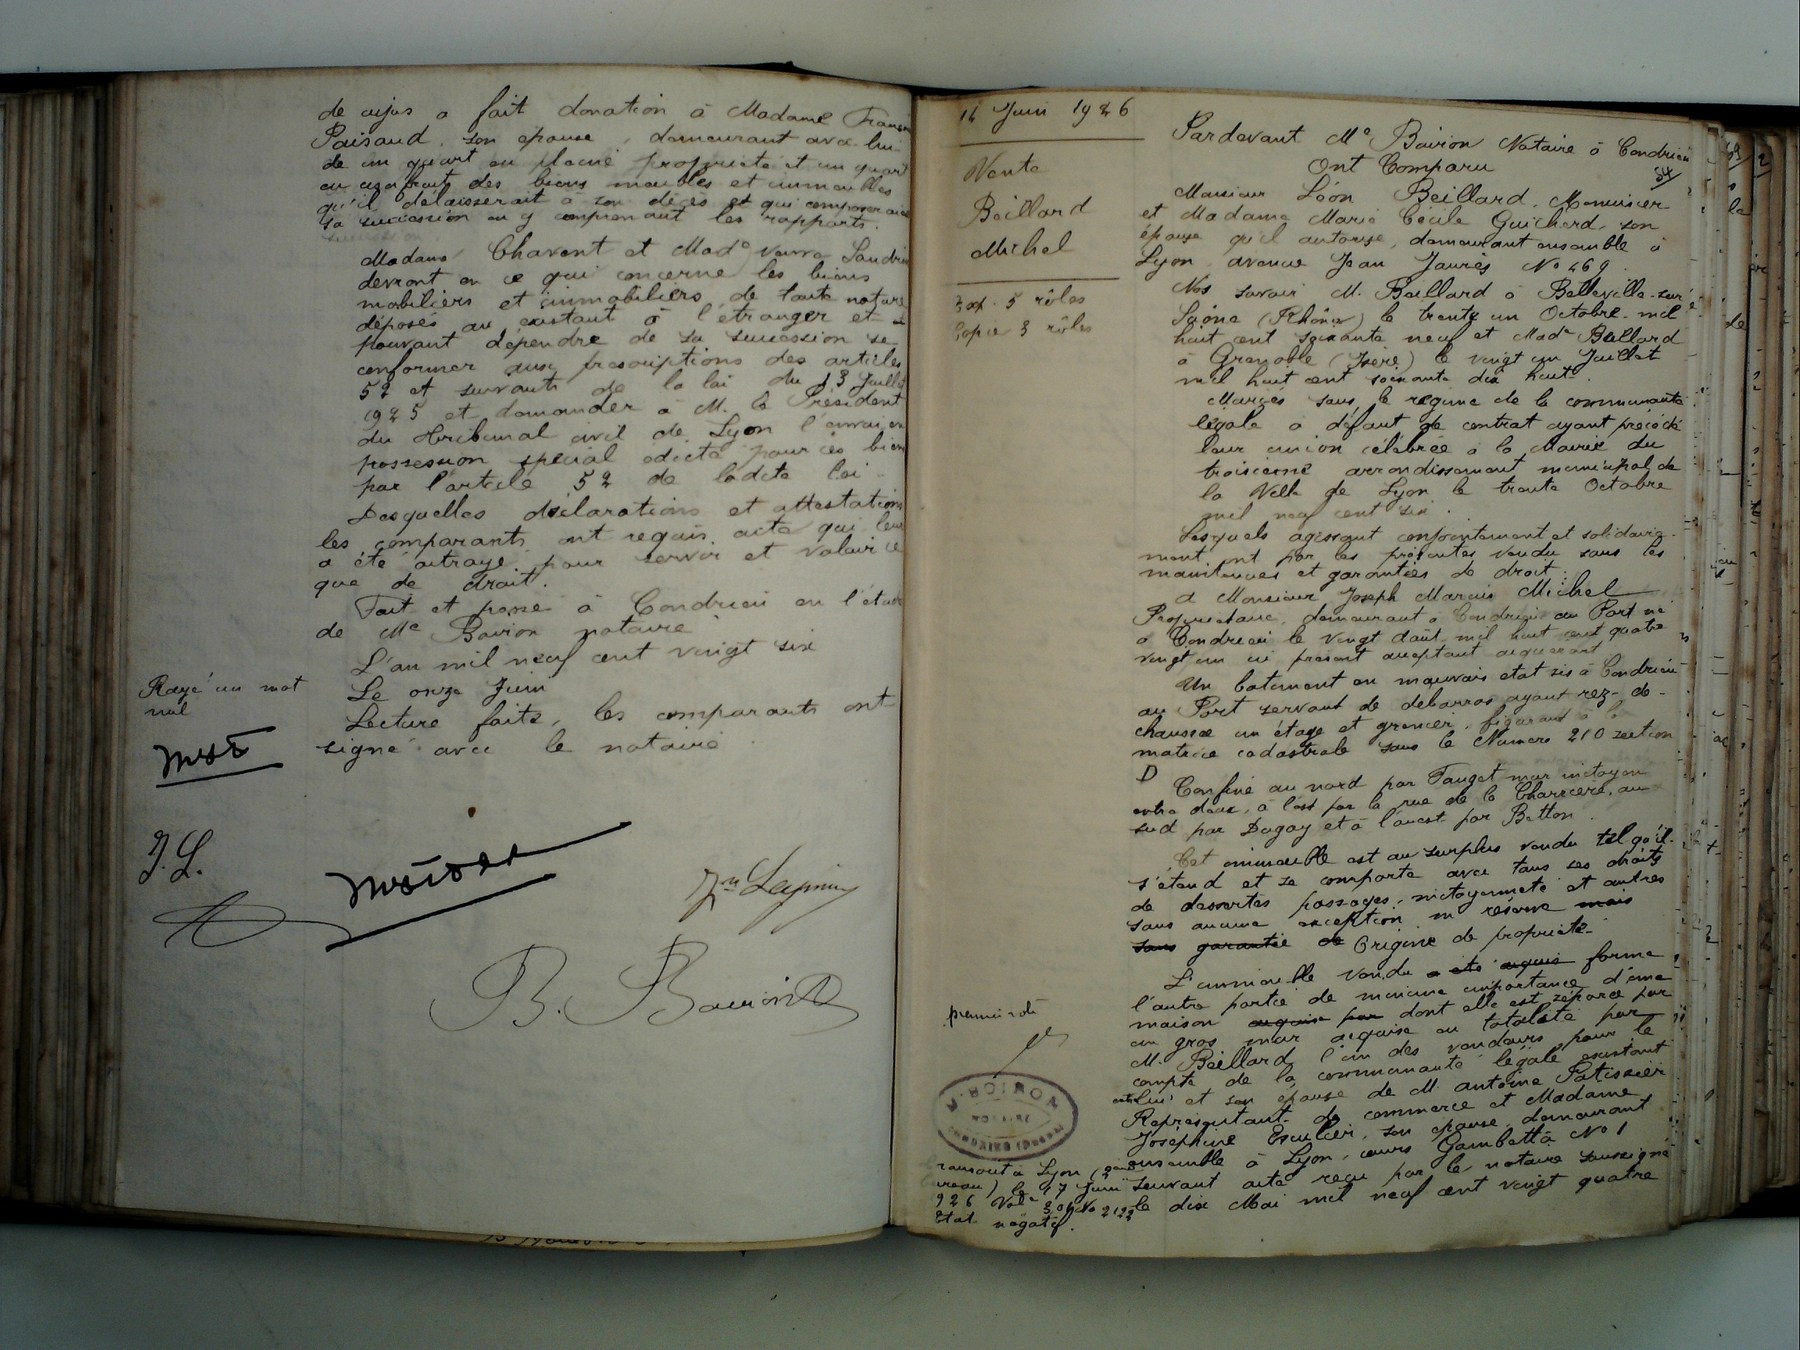 de cujus a fait donation à Madame
Paisaud, son épouse, demeurant avec lui
de un quart en pleine propriété et un quart
en usufruit des biens meubles et immeubles
qu'il délaisserait à son décès et qui
sa succession en y comprenant les rapports.
Madame Chavent et Made veuve
devront en ce qui concerne les biens
mobiliers et immobiliers de toute nature
déposés ou existant à l'étranger et
pouvant dépendre de sa succession se
conformer aux prescriptions des articles
52 et suivants de la loi du 13 Juillet
1925 et demander à M. le Président
du Tribunal civil de Lyon l'envoi en
possession spécial édicté pour ces biens
par l'article 52 de ladite loi.
Desquelles déclarations et attestations
les comparants ont requis acte qui leur
a été octroyé pour servir et valoir ce
que de droit.
Fait et passé à Condrieu en l'étude
de Me Boiron notaire
L'an mil neuf cent vingt six
Le onze Juin
Lecture faite, les comparants ont
signé avec le notaire.
Rayé un mot
nul
J. L.
B. Boiron
14 Juin 1926
Vente
Beillard
Michel
Exp. 5 rôles
Copie 3 rôles
Pardevant Me Boiron Notaire à Condrieu
Ont Comparu
Monsieur Léon Beillard, Menuisier
et Madame Marie Cécile Guichard, son
épouse qu'il autorise, demeurant ensemble à
Lyon avenue Jean Jaurès No 269.
Nés savoir M. Beillard à Belleville-sur-
Saône (Rhône) le trente un Octobre mil
huit cent soixante neuf et Made Beillard
à Grenoble (Isère) le vingt un Juillet
mil huit cent soixante dix huit.
Mariés sous le régime de la communauté
légale à défaut de contrat ayant précédé
leur union célébrée à la Mairie du
troisième arrondissement municipal de
la Ville de Lyon le trente Octobre
mil neuf cent six.
Lesquels agissant conjointement et solidaire-
ment ont par les présentes vendu sous les
maintenues et garanties de droit.
A Monsieur Joseph Marius Michel
Propriétaire, demeurant à Condrieu au Port né
à Condrieu le vingt août mil huit cent quatre
vingt un ici présent acceptant acquérant
Un bâtiment en mauvais état sis à Condrieu
au Port servant de débarras ayant rez-de-
chaussée un étage et grenier, figurant à la
matrice cadastrale sous le Numéro 210 section
D
Confiné au nord par Fauget mur mitoyen
entre deux, à l'est par la rue de la Charrière, au
sud par Dugay et à l'ouest par Betton.
Cet immeuble est au surplus vendu tel qu'il
s'étend et se comporte avec tous ses droits
de dessertes passages, mitoyenneté et autres
sans aucune exception ni réserve mais
sans garantie de Origine de propriété.
L'immeuble vendu a été acquis forme
l'autre partie de minime importance d'une
maison acquise par dont elle est séparée par
un gros mur acquise en totalité par
M. Beillard l'un des vendeurs pour le
compte de la communauté légale existant
entre lui et son épouse de M. Antoine Patissier
Représentant de commerce et Madame
Joséphine Esculier, son épouse, demeurant
ensemble à Lyon, cours Gambetta No 1
suivant acte reçu par le notaire soussigné
le dix Mai mil neuf cent vingt quatre
premier rôle
BOIRON
NOTAIRE
à Lyon
bureau) le 17 Juin
926 Vol. No 2122
Etat négatif.